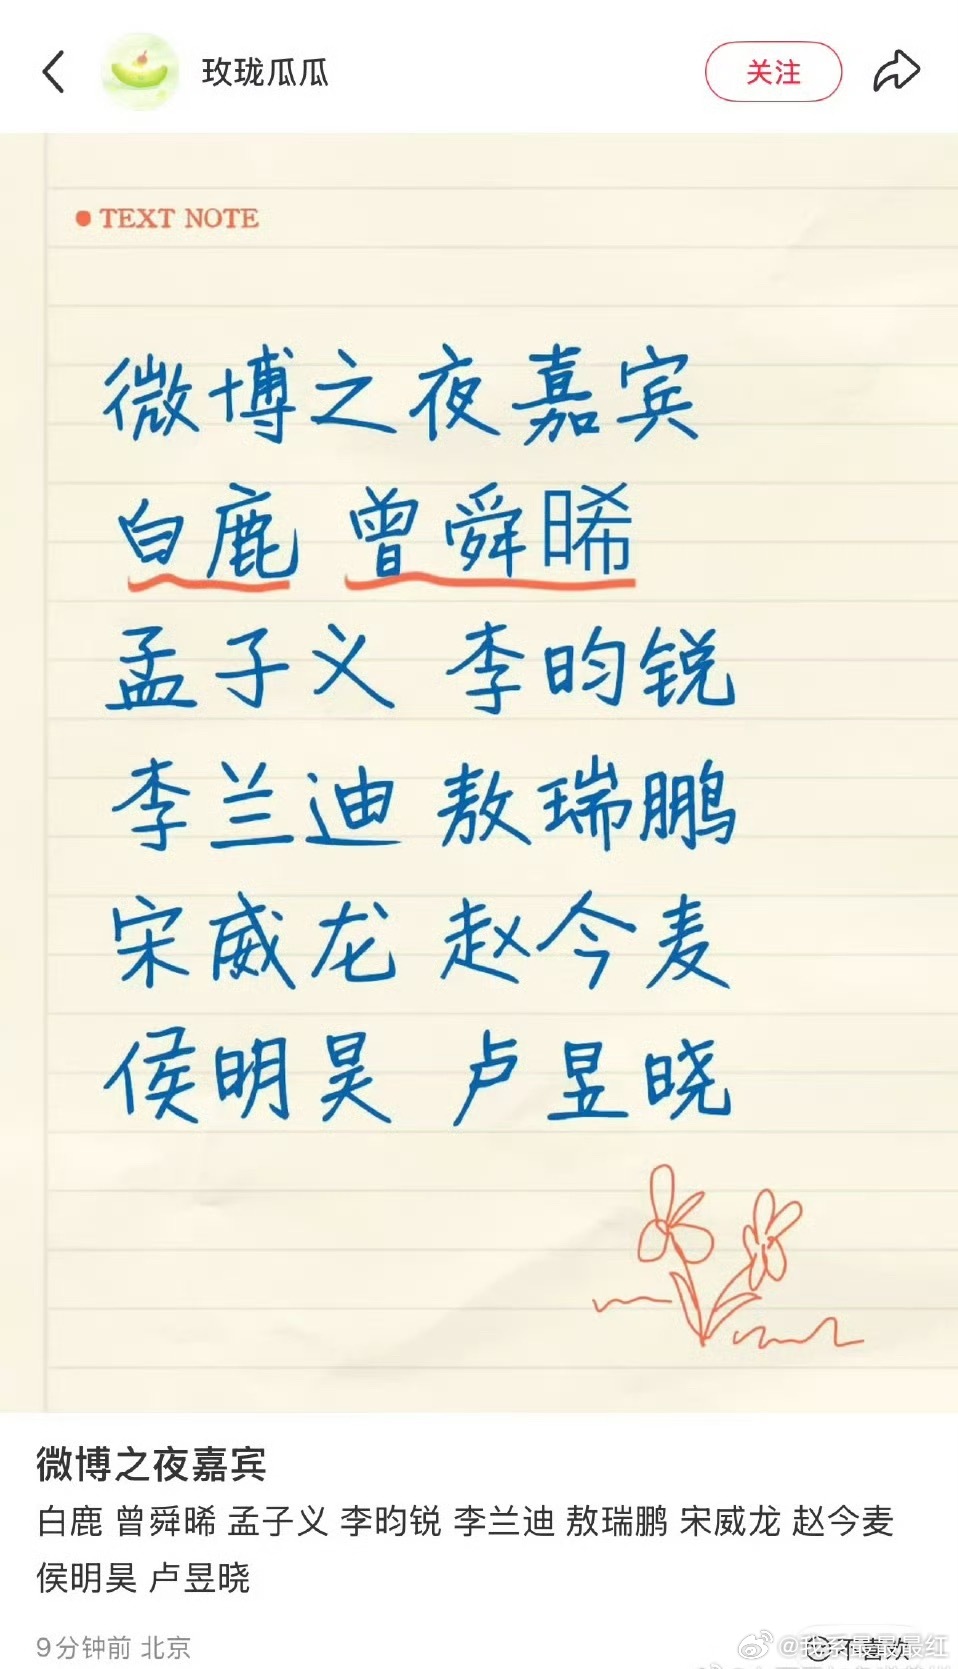 玫珑瓜瓜
关注
TEXT NOTE
微博之夜嘉宾
白鹿 曾舜晞
孟子义 李昀锐
李兰迪 敖瑞鹏
宋威龙 赵今麦
侯明昊 卢昱晓
微博之夜嘉宾
白鹿 曾舜晞 孟子义 李昀锐 李兰迪 敖瑞鹏 宋威龙 赵今麦
侯明昊 卢昱晓
9分钟前 北京
不喜欢